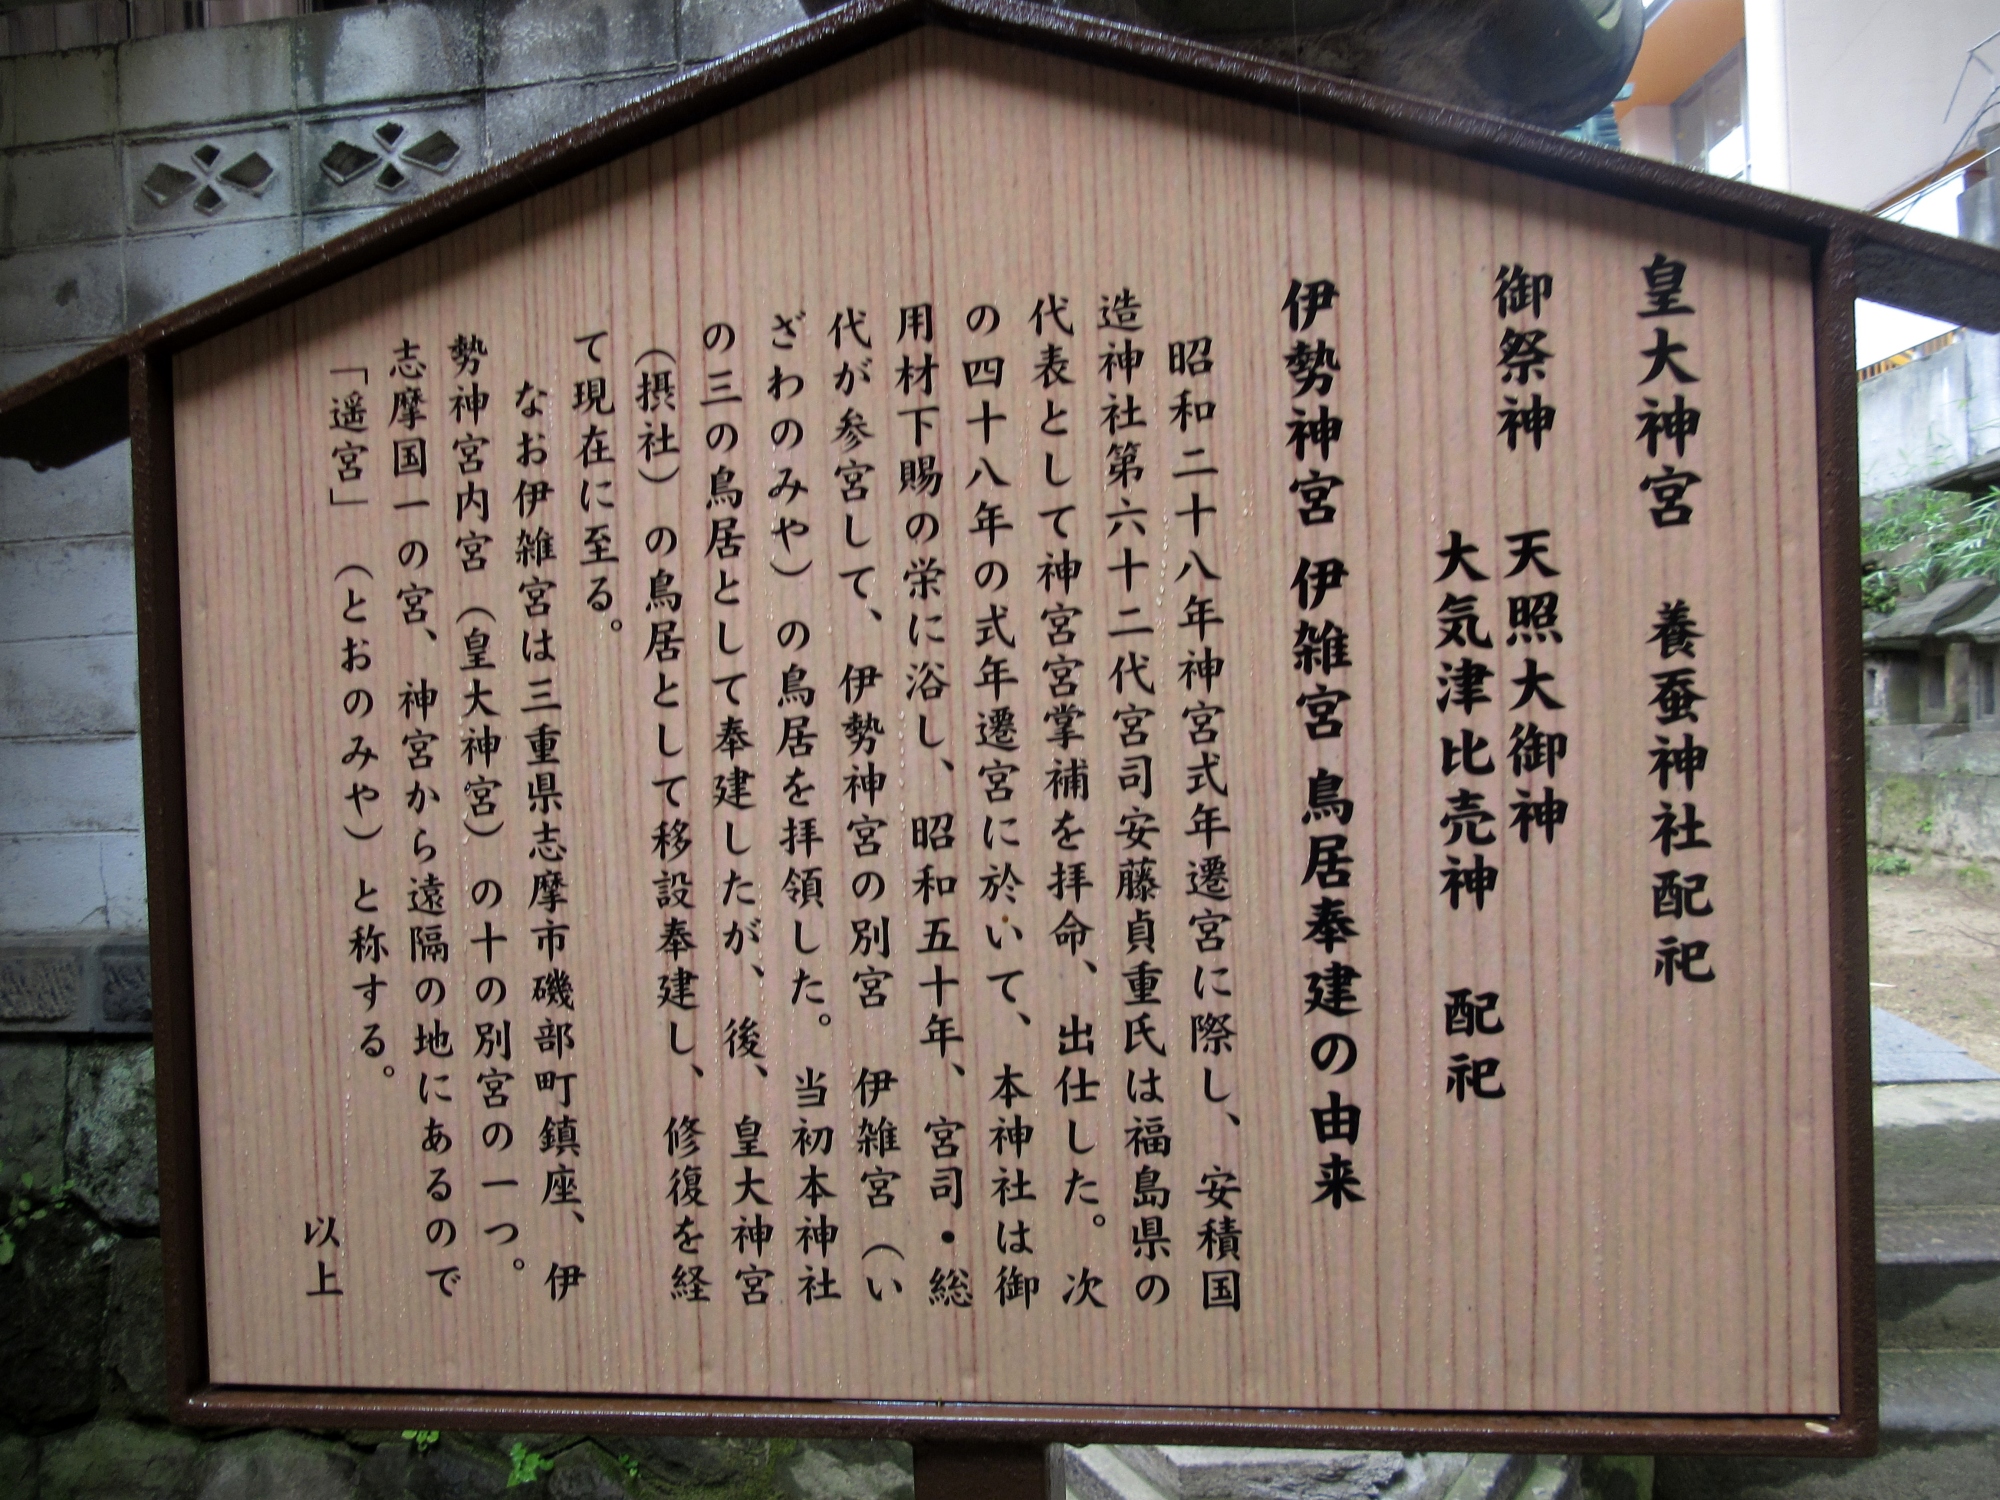 皇大神宮　養蚕神社配祀
御祭神　天照大御神
大気津比売神　配祀
伊勢神宮 伊雑宮 鳥居奉建の由来
昭和二十八年神宮式年遷宮に際し、安積国
造神社第六十二代宮司安藤貞重氏は福島県の
代表として神宮宮掌補を拝命、出仕した。次
の四十八年の式年遷宮に於いて、本神社は御
用材下賜の栄に浴し、昭和五十年、宮司・総
代が参宮して、伊勢神宮の別宮　伊雑宮（い
ざわのみや）の鳥居を拝領した。当初本神社
の三の鳥居として奉建したが、後、皇大神宮
（摂社）の鳥居として移設奉建し、修復を経
て現在に至る。
なお伊雑宮は三重県志摩市磯部町鎮座、伊
勢神宮内宮（皇大神宮）の十の別宮の一つ。
志摩国一の宮、神宮から遠隔の地にあるので
「遥宮」（とおのみや）と称する。
以上